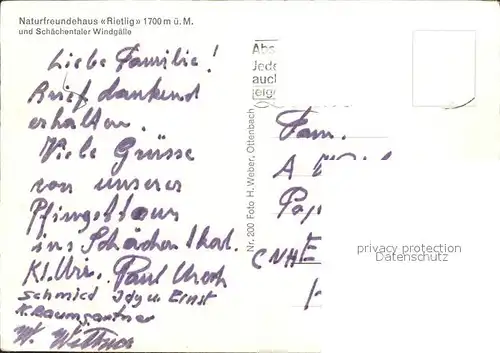 Naturfreundehaus «Rietlig» 1700 m ü. M.
und Schächentaler Windgälle
Liebe Familie!
Brief dankend
erhalten.
Viele Grüsse
von unserer
Pfingsttour
ins Schächenthal.
Kt. Uri. Paul
Schmied Idy u Ernst
K. Baumgartner
W.
Nr. 200 Foto H. Weber, Ottenbach
Abs
Jede
auch
eig
Fam.
A
CNHE
privacy protection
Datenschutz